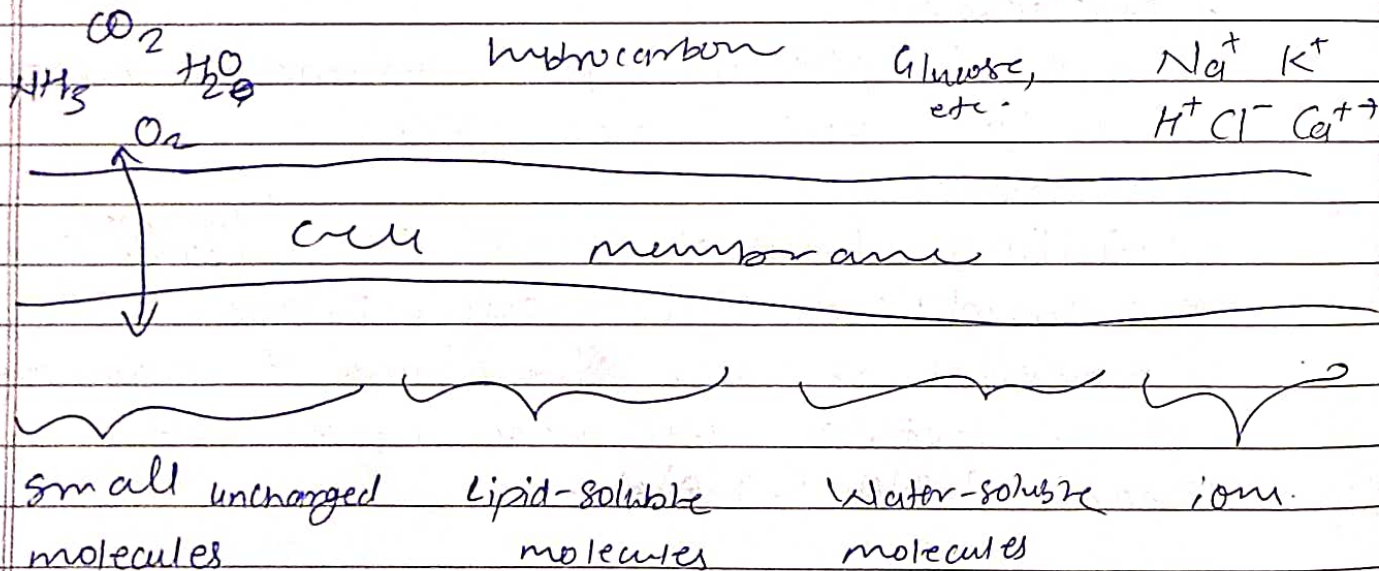 CO2
NH3 H2O
O2
hydrocarbon
Glucose,
etc.
Na+ K+
H+ Cl- Ca++
cell membrane
small uncharged
molecules
Lipid-soluble
molecules
Water-soluble
molecules
ions.